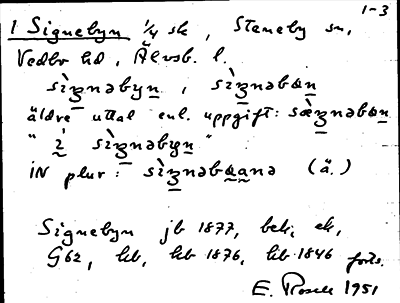 1-3
1 Signebyn ¼ sk, Steneby sn,
Vedbo hd, Älvsb. l.
sìʒnəbyn, sìʒnəbœn
äldre uttal enl. uppgift: sæ̀ʒnəbœn
" i sìʒnəbyn "
iN plur: sìʒnəbœanə (ä.)
Signebyn jb 1877, bek, ek,
G62, hb, hb 1876, hb 1846 forts.
E. Rosell 1951